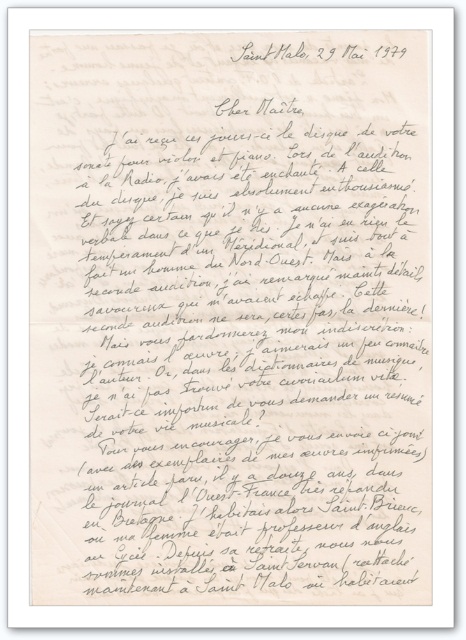 Saint Malo, 29 Mai 1979
Cher Maître,
J'ai reçu ces jours-ci le disque de votre
sonate pour violon et piano. Lors de l'audition
à la Radio, j'avais été enchanté. A celle
du disque, je suis absolument enthousiasmé.
Et soyez certain qu'il n'y a aucune exagération
verbale dans ce que je dis. Je n'ai en rien le
tempérament d'un Méridional, et suis tout à
fait un homme du Nord-Ouest. Mais à la
seconde audition, j'ai remarqué maints détails
savoureux qui m'avaient échappé. Cette
seconde audition ne sera, certes pas, la dernière!
Mais vous pardonnerez mon indiscrétion:
je connais l'œuvre; j'aimerais un peu connaître
l'auteur. Or, dans les dictionnaires de musique,
je n'ai pas trouvé votre curriculum vitæ.
Serait-ce importun de vous demander un resumé
de votre vie musicale?
Pour vous encourager, je vous envoie ci-joint
(avec des exemplaires de mes œuvres imprimées)
un article paru, il y a douze ans, dans
le journal l'Ouest-France très répandu
en Bretagne. J'habitais alors Saint-Brieuc,
où ma femme était professeur d'anglais
au Lycée. Depuis sa retraite, nous nous
sommes installés à Saint Servan (rattaché
maintenant à Saint Malo, où habitaient